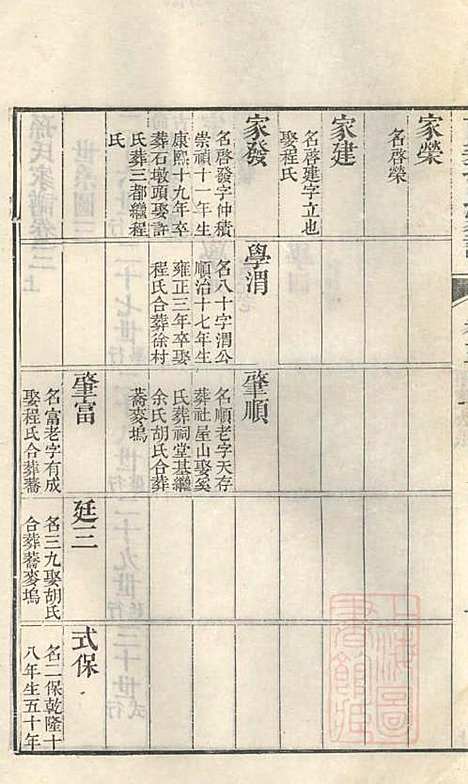 家榮
名啓榮
家建
名啓建字立也
娶程氏
家發
名啓發字仲積
崇禎十一年生
康熙十九年卒
葬石墩頭娶許
氏葬三都繼程
氏
學渭
名八十字渭公
順治十七年生
雍正三年卒娶
程氏合葬徐村
肇順
名順老字天存
葬社屋山娶奚
氏葬祠堂基繼
余氏胡氏合葬
蕎麥塢
肇富
名富老字有成
娶程氏合葬蕎
廷三
名三九娶胡氏
合葬蕎麥塢
式保
名二保乾隆十
八年生五十年